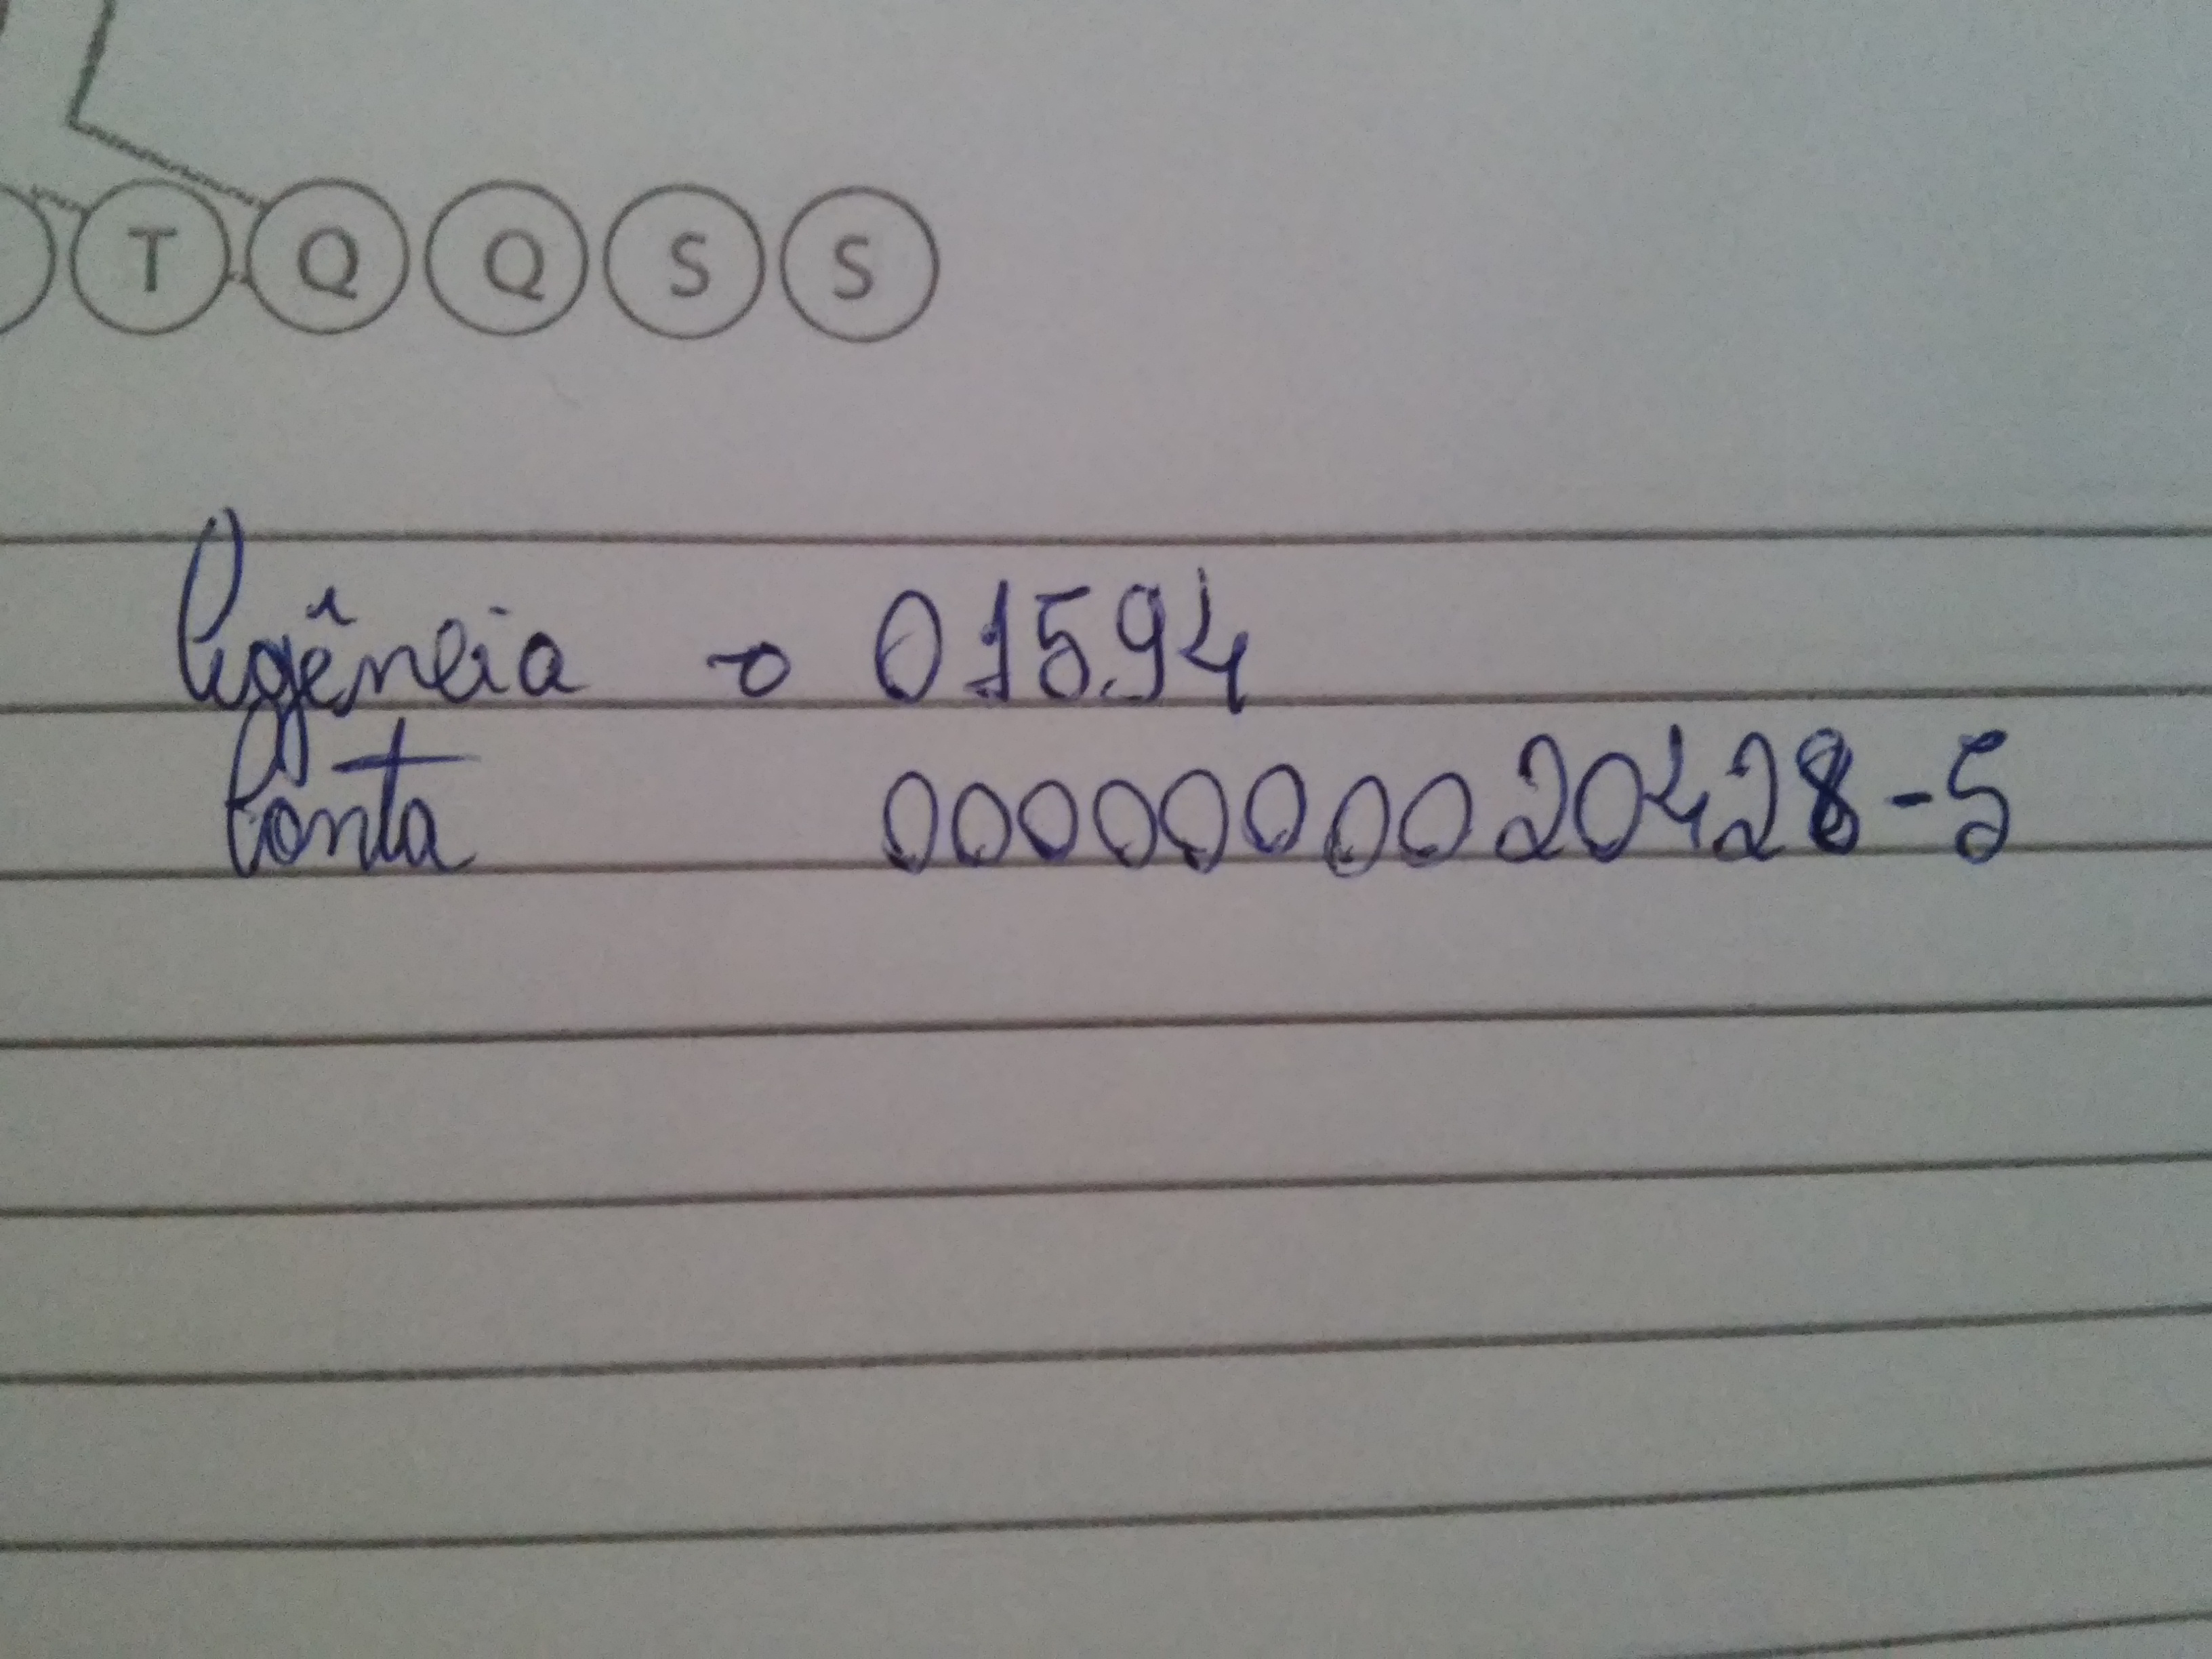 T Q Q S S
Agência - 0 01594
Conta 0000000020428-5